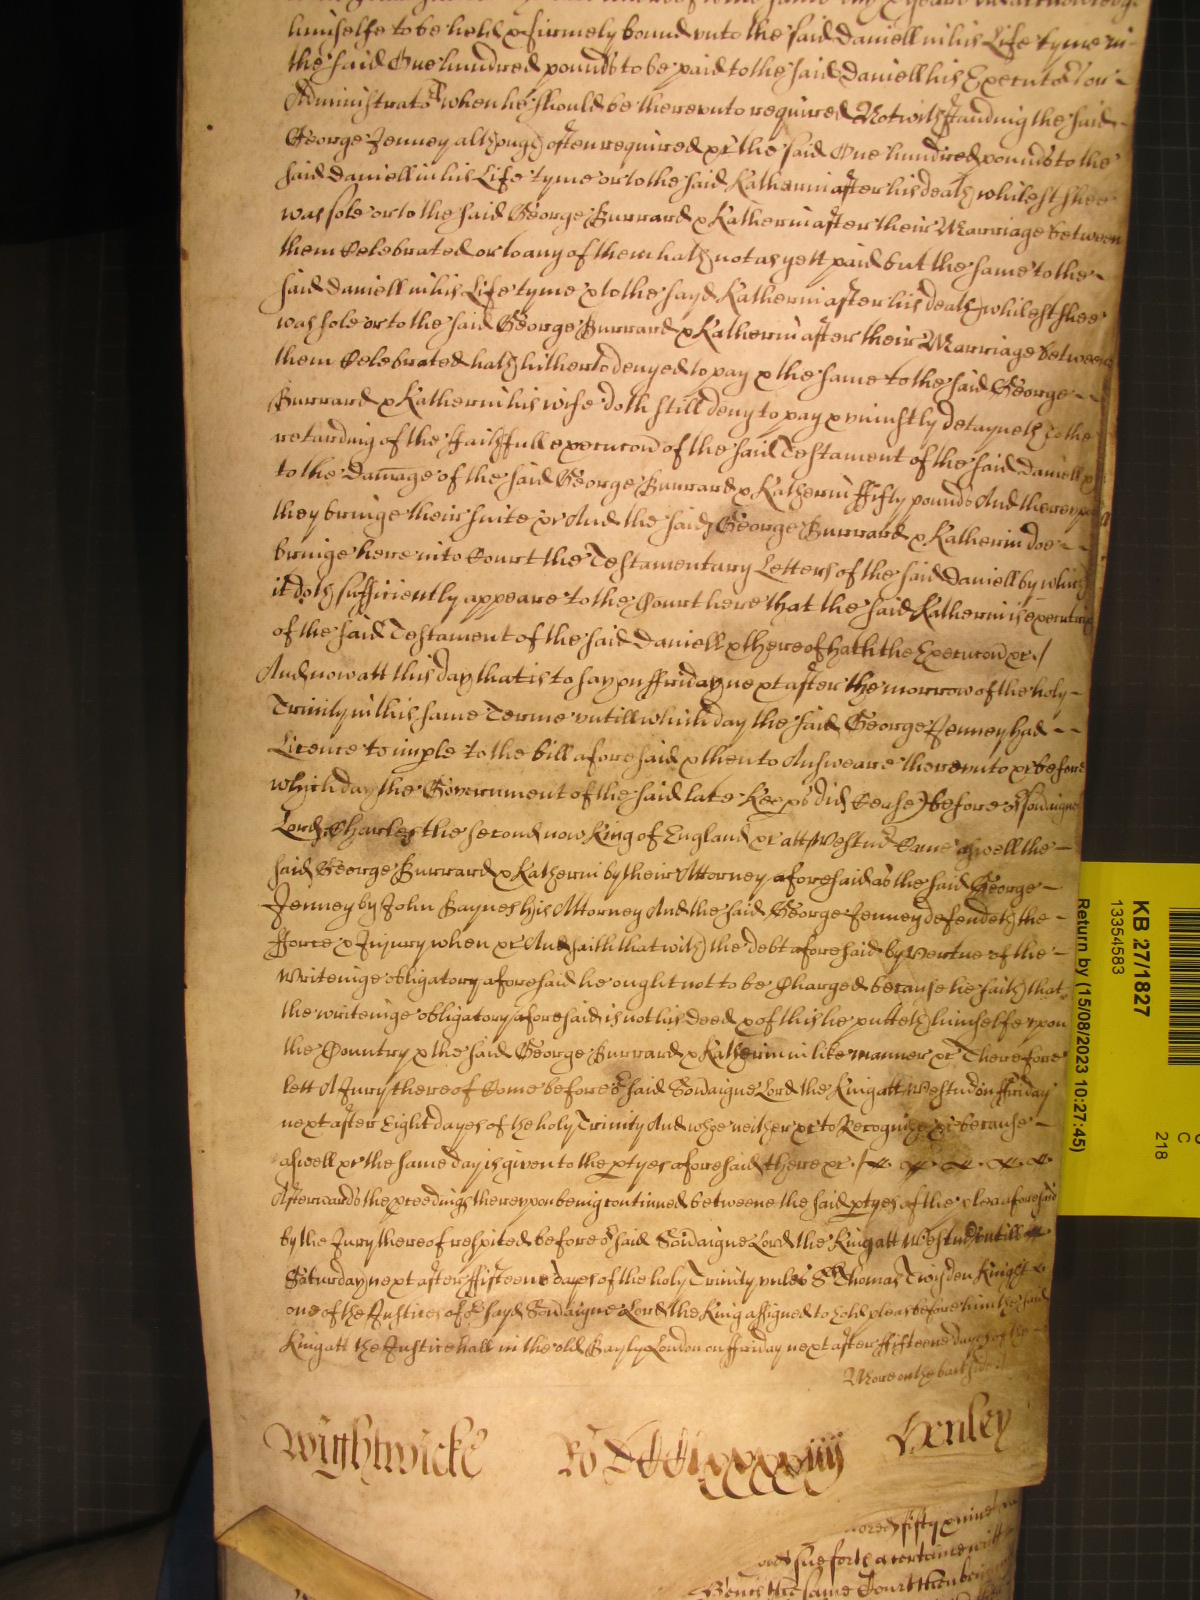 himselfe to be held & firmely bound unto the said Daniell in his Life tyme in
the said One hundred pounds to be paid to the said Daniell his Executor or
Administrator when he should be thereunto required Notwithstanding the said
George Jenney although often required &c the said One hundred pounds to the
said Daniell in his Life tyme or to the said Katherin after his death whilest shee
was sole or to the said George Burward & Katherin after their Marriage between
them Celebrated or to any of them hath not as yett paid but the same to the
said Daniell in his Life tyme & to the sayd Katherin after his death whilest shee
was sole or to the said George Burward & Katherin after their Marriage between
them Celebrated hath hitherto denyed to pay & the same to the said George
Burward & Katherin his wife doth still deny to pay & uniustly detayneth to the
retarding of the Faithfull execucon of the said Testament of the said Daniell &
to the Damage of the said George Burward & Katherin Fifty pounds And thereupon
they bringe their suite &c And the said George Burward & Katherin doe
bringe here into Court the Testamentary Letters of the said Daniell by which
it doth sufficiently appeare to the Court here that the said Katherin is executrix
of the said Testament of the said Daniell & thereof hath the Execucon &c /
And now att this day that is to say on ffriday next after the morrow of the holy
Trinity in this same Terme untill which day the said George Jenney had
Licence to imple to the bill aforesaid & then to Answeare thereunto &c before
which day the Government of the said late Keeps did Cease) before or Soveraigne
Lord Charles the second now King of England &c att Westm Came aswell the
said George Burward & Katherin by their Attorney aforesaid as the said George
Jenney by John Baynes His Attorney And the said George Jenney defendeth the
fforce & Injury when &c And saith that with the debt aforesaid by vertue of the
Writeinge obligatory aforesaid he ought not to be Charged because he saith that
the writeinge obligatory aforesaid is not his deed & of this he putteth himselfe upon
the Country & the said George Burward & Katherin in like manner &c Therefore
lett A Jury thereof Come before or said Soveraigne Lord the King att Westm on ffriday
next after Eight dayes of the holy Trinity And whoe neither &c to Recognize &c because
aswell &c the same day is given to the ptyes aforesaid there &c /
Afterwards the pceedings thereupon being continued betweene the said ptyes of the plea aforesaid
by the Jury thereof respited before or said Soveraigne Lord the King att Westm untill
Saturday next after ffifteene dayes of the holy Trinity unles Sr Thomas Twisden Knight
one of the Justices of or sayd Soveraigne Lord the King assigned to hold pleas before him the said
King att the Justice hall in the old Bayly London on ffriday next after ffifteene dayes of the
More on the back side
Wightwicke Ro DCCClxxxxviiij Henley
fifty & nine
sue forth a certaine writt
the same Court then being
KB 27/1827
13354583
Return by (15/08/2023 10:27:45)
C
218